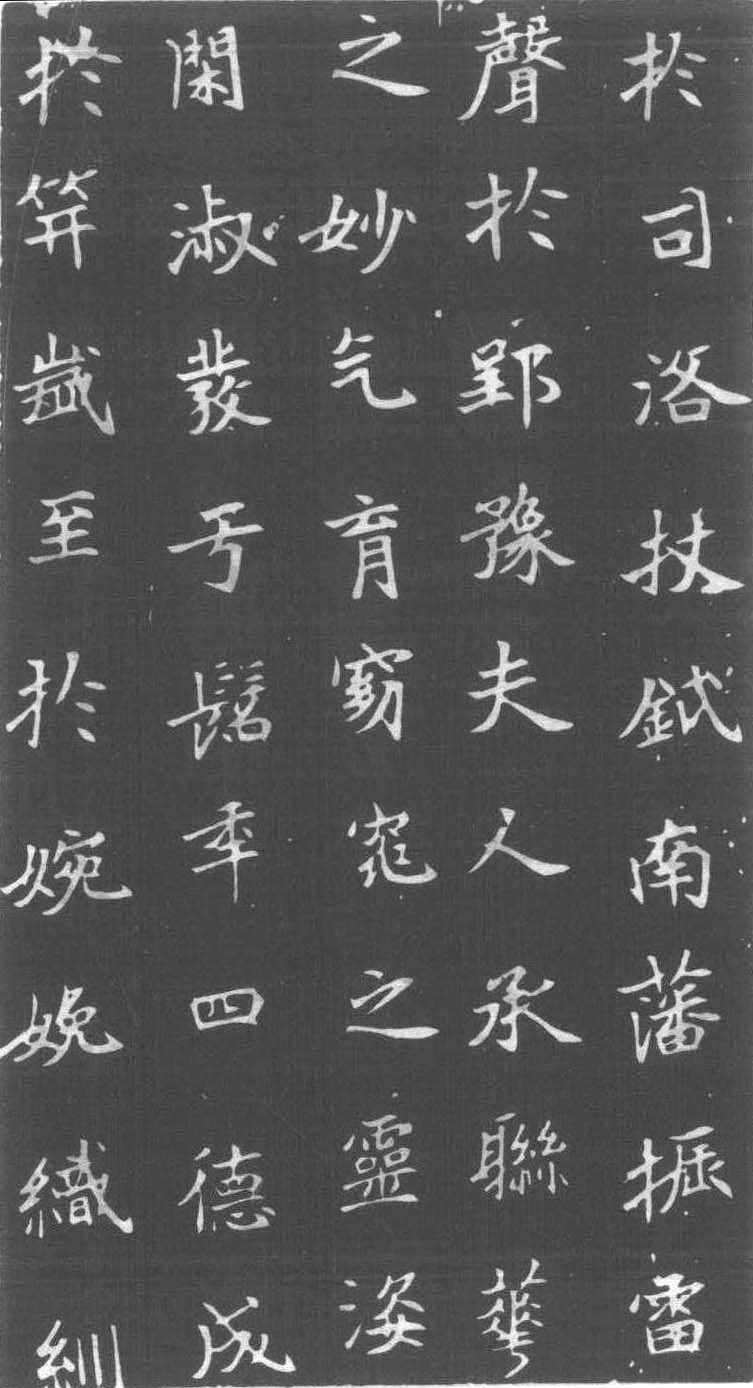 於司洛扙鉞南藩振雷
聲於郢豫夫人承聯華
之妙气育窈窕之靈姿
閑淑發于髫年四德成
於笄歲至於婉娩織紃